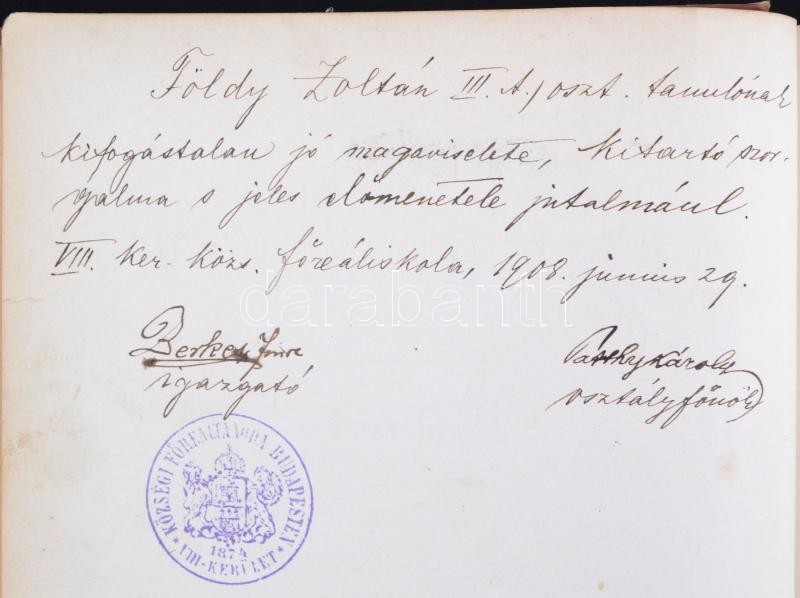 Földy Zoltán III. A.) oszt. tanulónak
kifogástalan jó magaviselete, kitartó szor-
galma s jeles előmenetele jutalmául.
VIII. ker. közs. főreáliskola, 1908. junius 29.
Berkesi Imre
igazgató
Páthy Károly
osztályfőnök
KÖZSÉGI FŐREÁLTANODA BUDAPESTEN
1874
VIII-KERÜLET
darabanth